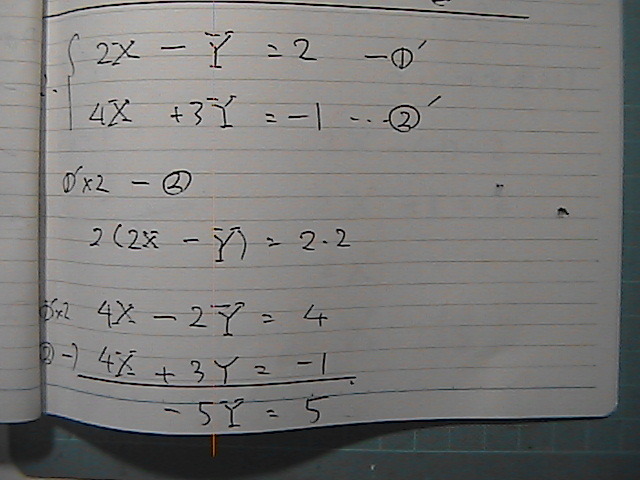 2X - Y = 2 -①'
4X + 3Y = -1 ... ②'
①'×2 - ②
2(2X - Y) = 2·2
①'×2 4X - 2Y = 4
②-) 4X + 3Y = -1
- 5Y = 5